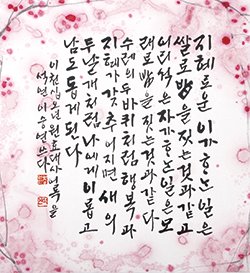 지혜로운 이가 하는 일은
쌀로 밥을 짓는 것과 같고
어리석은 자가 하는 일은 모
래로 밥을 짓는 것과 같다
수레의 두 바퀴처럼 행동과
지혜가 갖추어지면 새의
두 날개처럼 나에게 이롭고
남도 돕게 된다
이천십오년 원효대사 어록을
석연 이승연 쓰다